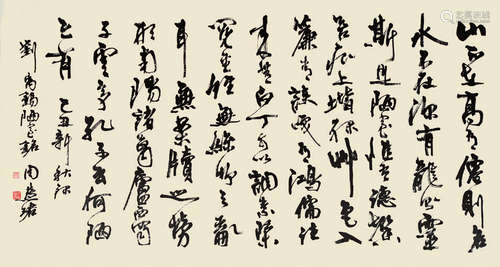 山不在高有僊則名
水不在深有龍則靈
斯是陋室惟吾德馨
苔痕上階綠艸色入
簾青談笑有鴻儒往
來無白丁可以調素琴
閱金經無絲竹之亂
耳無案牘之勞
形南陽諸葛廬西蜀
子雲亭孔子云何陋
之有 己丑新秋
劉禹錫陋室銘 周慧珺